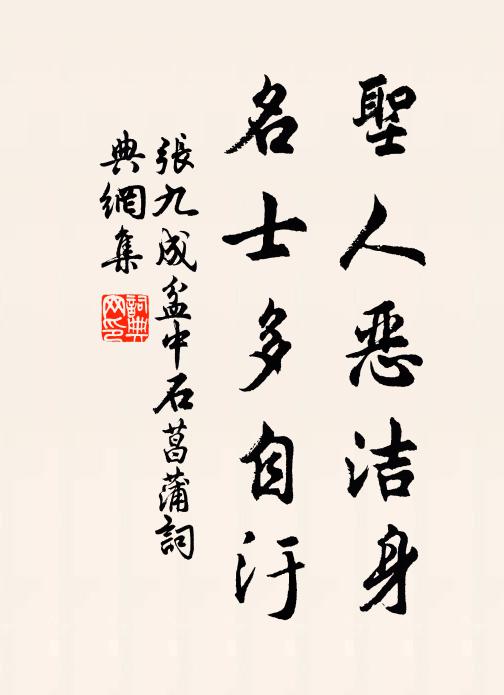 聖人惡洁身
名士多自汙
張九成盆中石菖蒲詞
典網集
詞典
网印